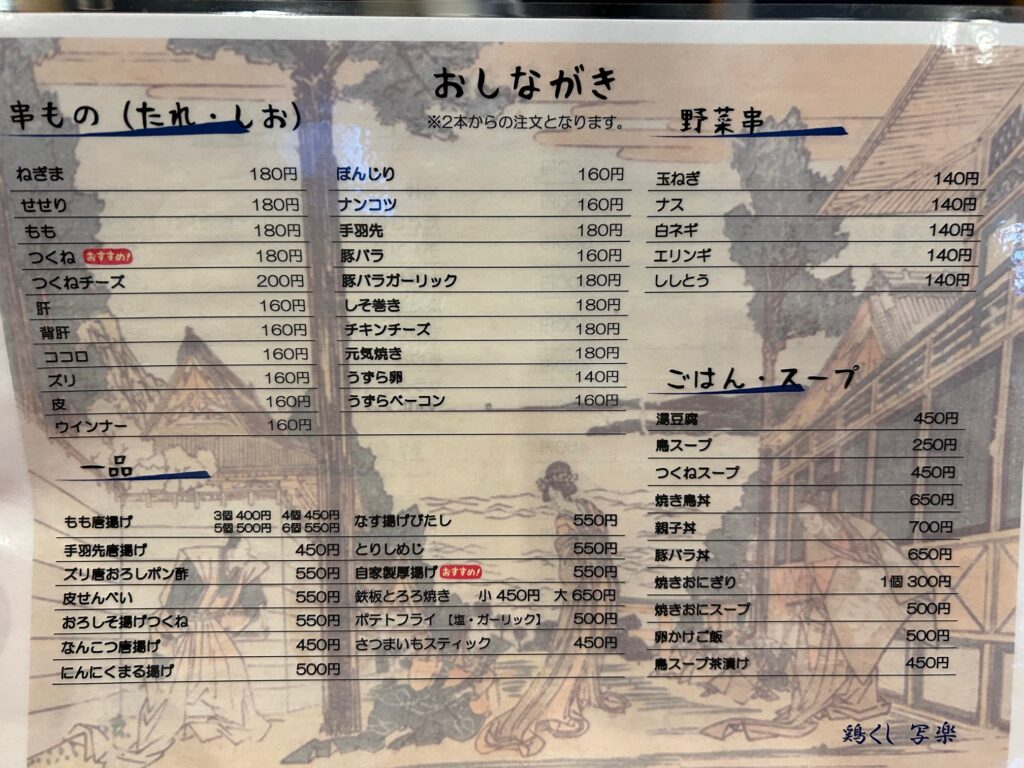 おしながき
※2本からの注文となります。
串もの（たれ・しお）
ねぎま 180円
せせり 180円
もも 180円
つくね おすすめ! 180円
つくねチーズ 200円
肝 160円
背肝 160円
ココロ 160円
ズリ 160円
皮 160円
ウインナー 160円
ぼんじり 160円
ナンコツ 160円
手羽先 180円
豚バラ 160円
豚バラガーリック 180円
しそ巻き 180円
チキンチーズ 180円
元気焼き 180円
うずら卵 140円
うずらベーコン 160円
野菜串
玉ねぎ 140円
ナス 140円
白ネギ 140円
エリンギ 140円
ししとう 140円
一品
もも唐揚げ 3個 400円 4個 450円
5個 500円 6個 550円
手羽先唐揚げ 450円
ズリ唐おろしポン酢 550円
皮せんべい 550円
おろしそ揚げつくね 550円
なんこつ唐揚げ 450円
にんにくまる揚げ 500円
なす揚げびたし 550円
とりしめじ 550円
自家製厚揚げ おすすめ! 550円
鉄板とろろ焼き 小 450円 大 650円
ポテトフライ［塩・ガーリック］ 500円
さつまいもスティック 450円
ごはん・スープ
湯豆腐 450円
鳥スープ 250円
つくねスープ 450円
焼き鳥丼 650円
親子丼 700円
豚バラ丼 650円
焼きおにぎり 1個 300円
焼きおにスープ 500円
卵かけご飯 500円
鳥スープ茶漬け 450円
鶏くし 写楽